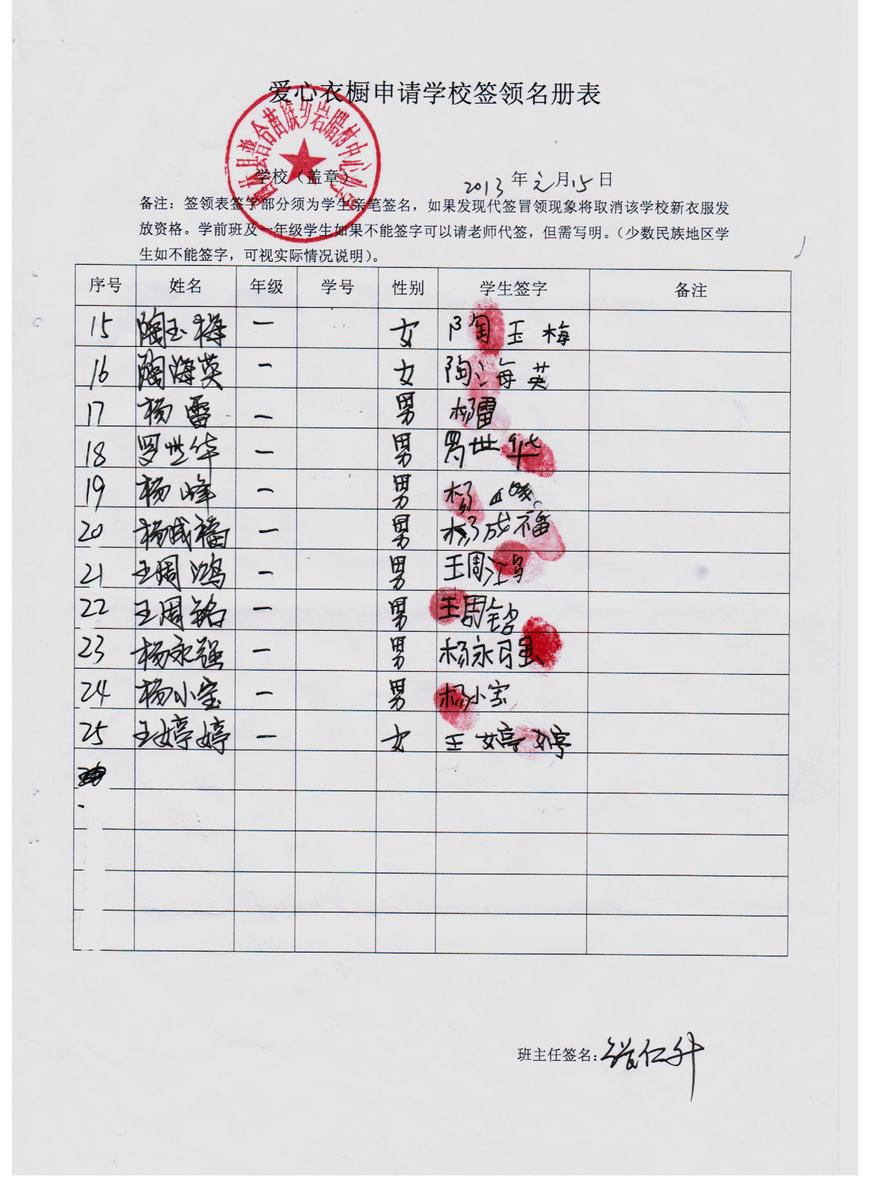 爱心衣橱申请学校签领名册表
普合苗族乡岩腊村中心
学校（盖章）
2013 年 元 月 15 日
备注：签领表签字部分须为学生亲笔签名，如果发现代签冒领现象将取消该学校新衣服发
放资格。学前班及一年级学生如果不能签字可以请老师代签，但需写明。（少数民族地区学
生如不能签字，可视实际情况说明）。
序号 姓名 年级 学号 性别 学生签字 备注
15 陶玉梅 一 女 陶玉梅
16 陶海英 一 女 陶海英
17 杨雷 一 男 杨雷
18 罗世华 一 男 罗世华
19 杨峰 一 男 杨峰
20 杨成福 一 男 杨成福
21 王周鸿 一 男 王周鸿
22 王周铭 一 男 王周铭
23 杨永强 一 男 杨永强
24 杨小宝 一 男 杨小宝
25 王婷婷 一 女 王婷婷
班主任签名：仁升